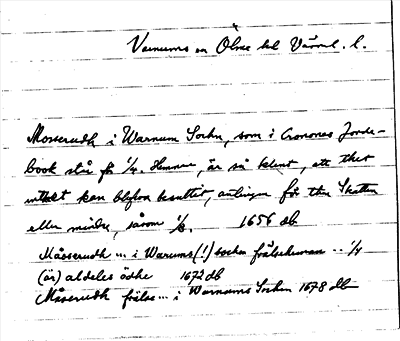 Varnums sn Ölme hd Värml. l.
Mosserudh i Warnum Sochn, som i Cronones Jorde-
book står för 1/4 Hemman, är så klent, att thet
intet kan blifva besuttit, antingen för then Skatten
eller mindre, såsom 1/8. 1656 db.
Måsserudh ... i Warums(!) sochen frälsehemman .. 1/4
(är) aldeles ödhe 1672 db
Måserudh frälse ... i Warnums Sochen 1678 db